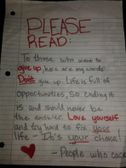 PLEASE
READ:
To those who want to
give up, here are my words:
Don't give up. Life is full of
opportunities, So ending it
is and should never be
the answer. Love yourself
and try hard to fix your
life. Do's your choice!
- People who care